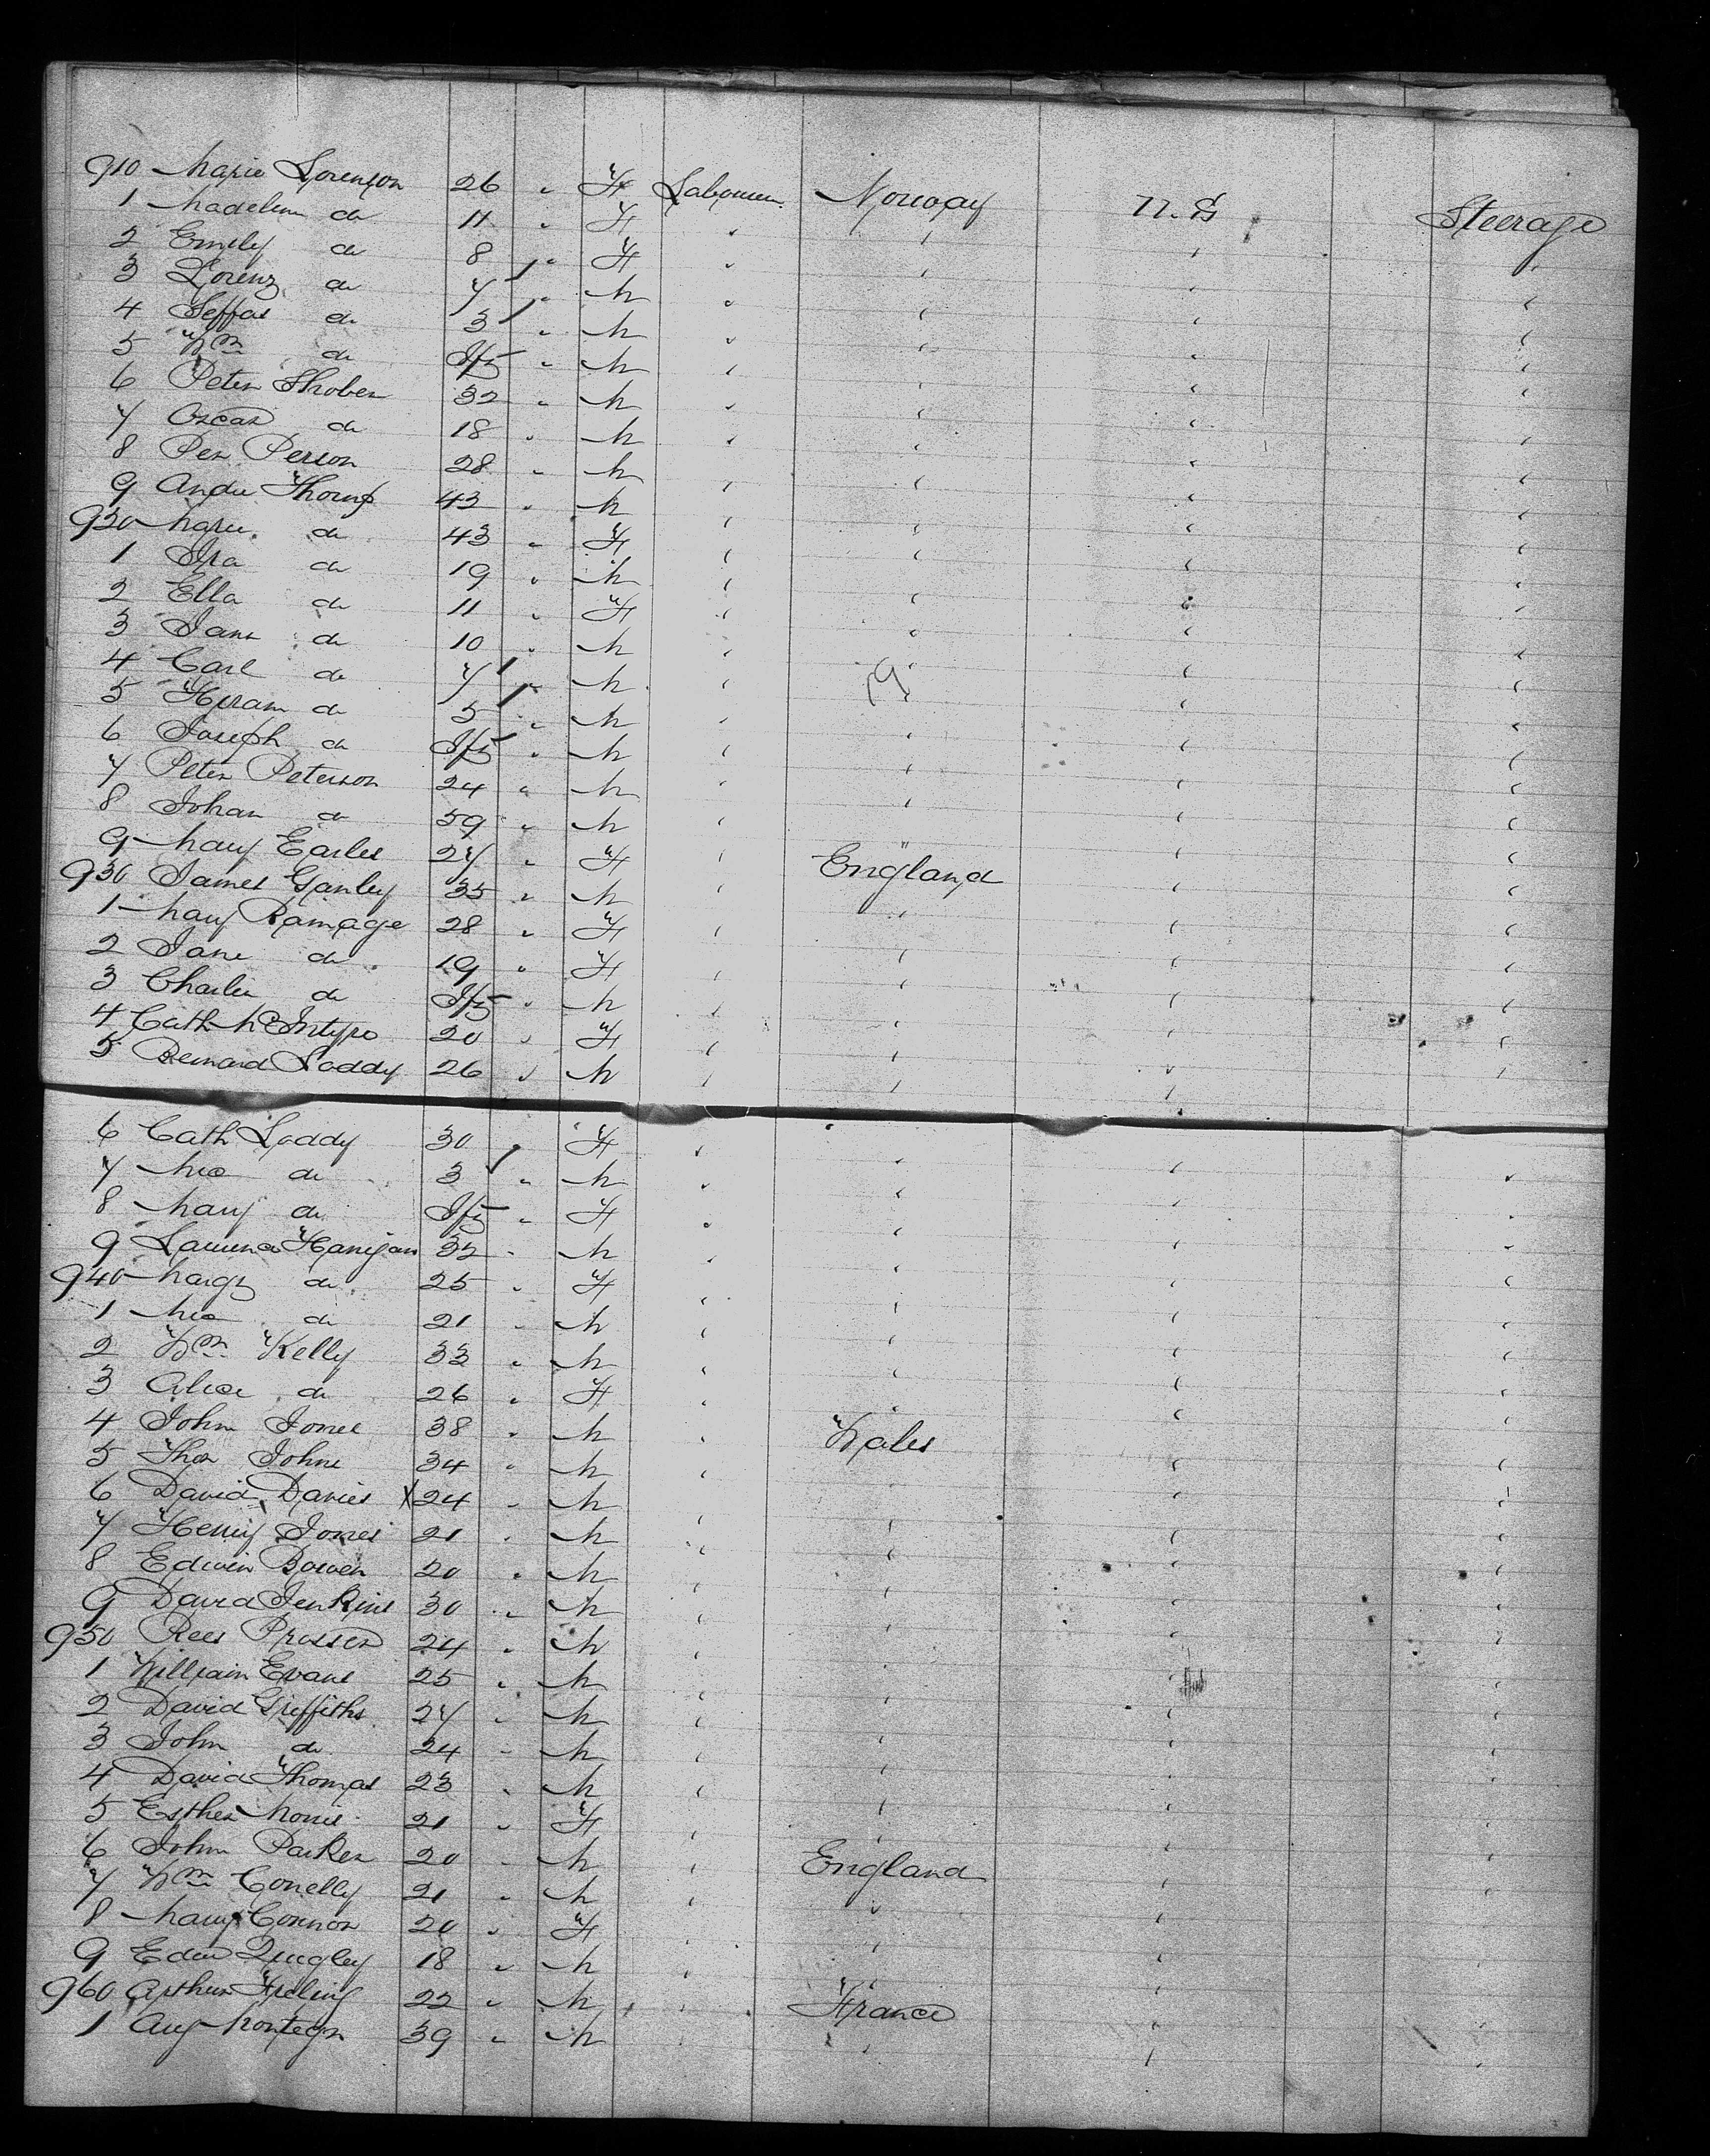 910 Marie Lorenson 26 " F Labourer Norway U.S Steerage
1 Madeline do 11 " F " " " "
2 Emily do 8 " F " " " "
3 Lorenz do 7 " M " " " "
4 do 3 " M " " " "
5 Wm do Inft " M " " " "
6 Peter 32 " M " " " "
7 Oscar do 18 " M " " " "
8 Per Person 28 " M " " " "
9 Andw Thorup 42 " M " " " "
920 Marie do 43 " F " " " "
1 Ira do 19 " M " " " "
2 Ella do 11 " F " " " "
3 Jans do 10 " M " " " "
4 Carl do 7 " M " " " "
5 Hiram do 5 " M " " " "
6 Joseph do Inft " M " " " "
7 Peter Peterson 24 " M " " " "
8 Johan do 59 " M " " " "
9 Mary Earles 27 " F " England " "
930 James Ganley 35 " M " " " "
1 Mary Ramage 28 " F " " " "
2 Jane do 19 " F " " " "
3 Charles do Inft " M " " " "
4 Cath McIntyre 20 " F " " " "
5 Bernard Loddy 26 " M " " " "
6 Cath Loddy 30 " F " " " "
7 do 3 " M " " " "
8 Mary do Inft " F " " " "
9 Hanigan 32 " M " " " "
940 Margt do 25 " F " " " "
1 do 21 " M " " " "
2 Wm Kelly 33 " M " " " "
3 Alice do 26 " F " " " "
4 John Jones 38 " M " Wales " "
5 Thos Johns 34 " M " " " "
6 David Davies X 24 " M " " " "
7 Henry Jones 21 " M " " " "
8 Edwin Bowen 20 " M " " " "
9 David Jenkins 30 " M " " " "
950 Rees Prosser 24 " M " " " "
1 William Evans 25 " M " " " "
2 David Griffiths 27 " M " " " "
3 John do 24 " M " " " "
4 David Thomas 23 " M " " " "
5 Esther Morris 21 " F " " " "
6 John Parker 20 " M " England " "
7 Wm Conelly 21 " M " " " "
8 Mary Connor 20 " F " " " "
9 Edwd Quigley 18 " M " " " "
960 Arthur 22 " M " France " "
1 Aug 39 " M " " " "